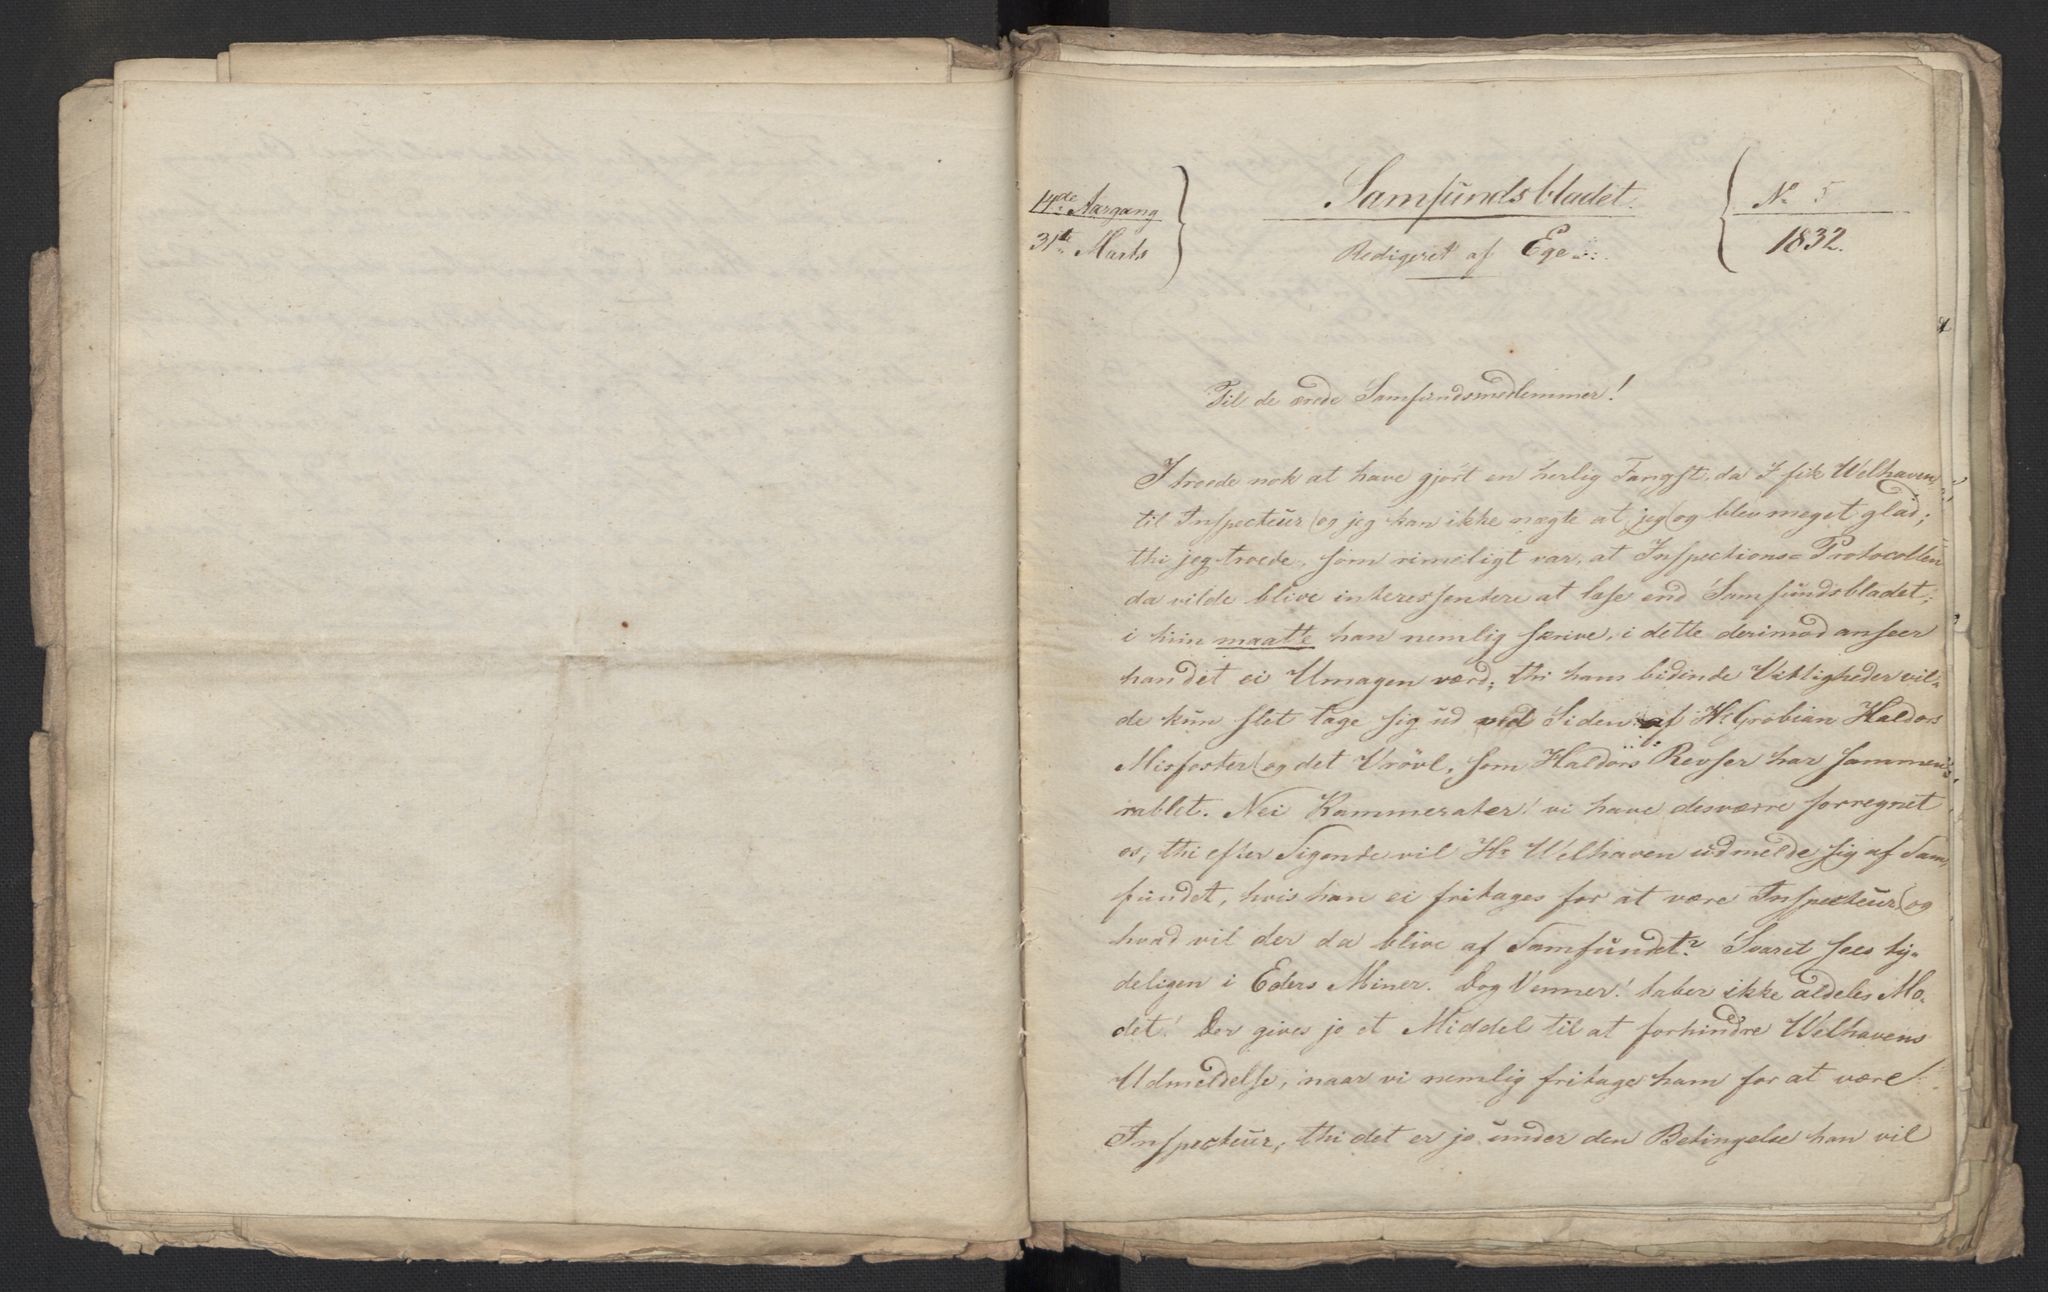 14de Aargang
31te Marts
Samfundsbladet.
Redigeret af Ege
No 5
1832.
Til de ærede Samfundsmedlemmer!
I troede nok at have gjört en herlig Fangst, da I fik Welhaven
til Inspecteur (og jeg kan ikke nægte at jeg) og blev meget glad;
thi jeg troede, som rimeligt var, at Inspections-Protocollen
da vilde blive interessantere at læse end Samfundsbladet;
i hiin maatte han nemlig skrive, i dette derimod anseer
han det ei Umagen værd; thi hans bidende Vittigheder vil-
de kun slet tage sig ud ved Siden af Hr Grobian Haldors
Misfoster (og det Vrövl, som Haldors Revser har sammen-
rablet. Nei Kammerater! vi have desværre forregnet
os, thi efter Sigende vil Hr Welhaven udmelde sig af Sam-
fundet, hvis han ei fritages for at være Inspecteur (og
hvad vil der da blive af Samfundet? Svaret sees ty-
deligen i Eders Miner. Dog Venner! taber ikke aldeles Mo-
det! Der gives jo et Middel til at forhindre Welhavens
Udmeldelse, naar vi nemlig fritage ham for at være
Inspecteur, thi det er jo under den Betingelse han vil